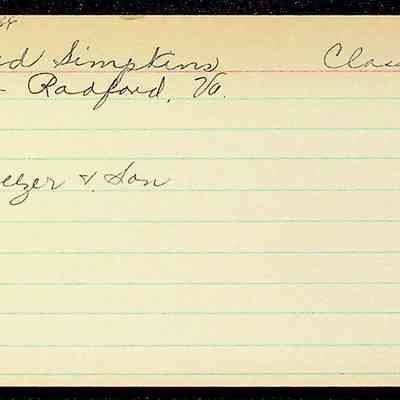 84
d Simpkins Clas
- Radford, Va.
eezer & Son